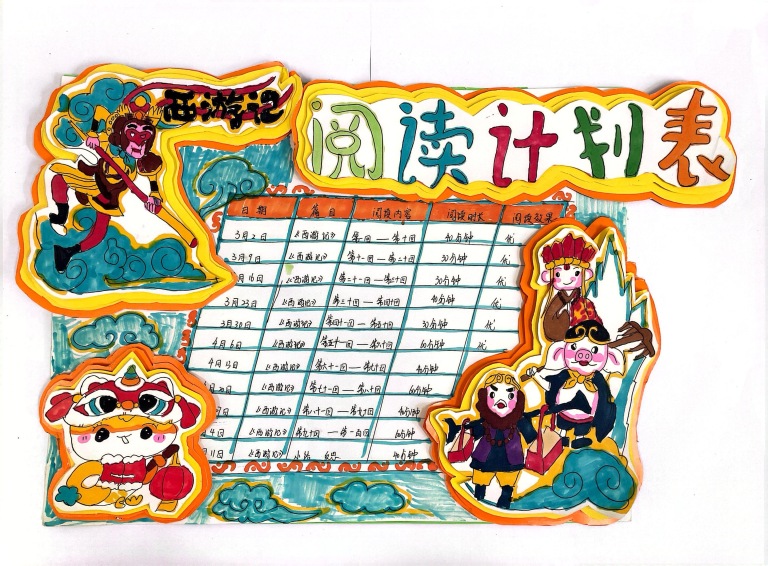 西游记
阅读计划表
日期 篇目 阅读内容 阅读时长 阅读效果
3月2日 《西游记》 第一回——第十回 40分钟 优
3月9日 《西游记》 第十一回——第二十回 30分钟 优
3月16日 《西游记》 第二十一回——第三十回 30分钟 优
3月23日 《西游记》 第三十一回——第四十回 40分钟 优
3月30日 《西游记》 第四十一回——第五十回 30分钟 优
4月6日 《西游记》 第五十一回——第六十回 60分钟 优
4月13日 《西游记》 第六十一回——第七十回 40分钟
月20日 《西游记》 第七十一回——第八十回 60分钟
7日 《西游记》 第八十一回——第九十回 40分钟
4日 《西游记》 第九十回——第一百回 60分钟
11日 《西游记》 小结 40分钟